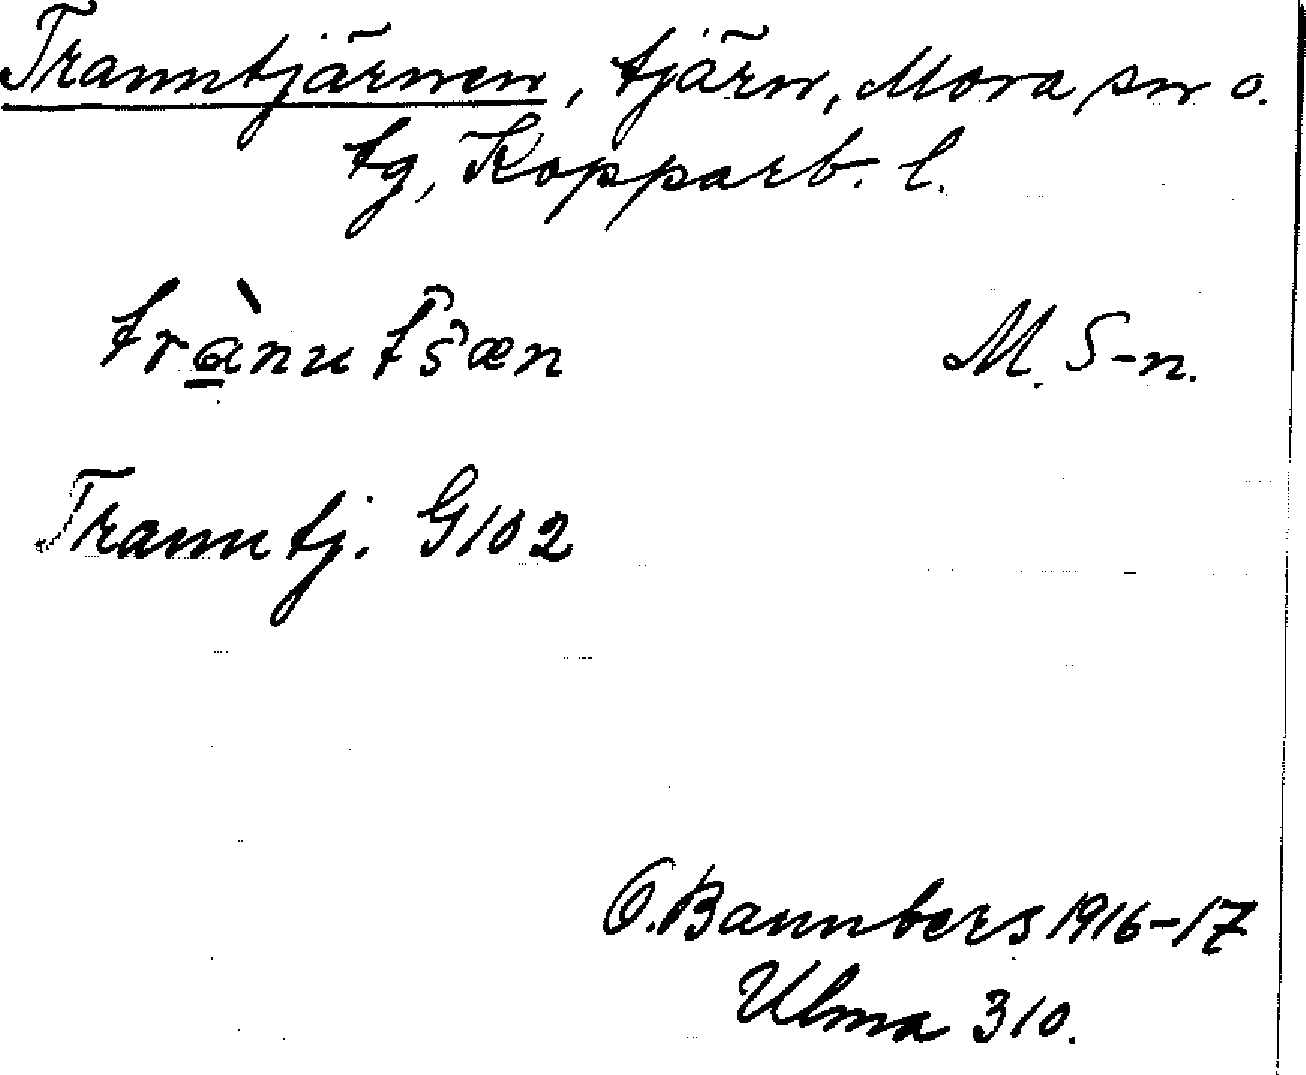 Tranntjärnen, tjärn, Mora sn o.
tg, Kopparb. l.
trànutsæn M. S-n.
Tranntj. G102
O. Bannbers 1916-17
Ulma 310.